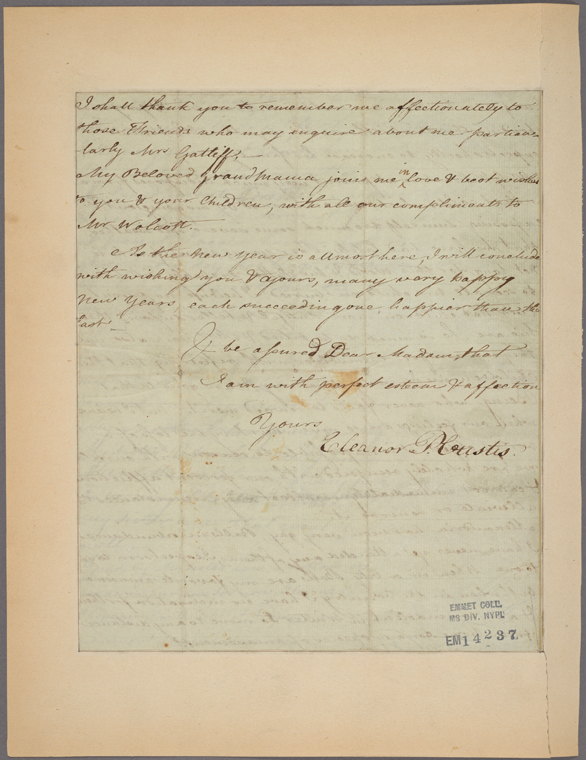 I shall thank you to remember me affectionately to
those Friends who may inquire about me particu-
larly Mrs Gatliff.—
My Beloved Grandmama joins me in love & best wishes
to you & your Children, with all our compliments to
Mr Wolcott.
As the New Year is allmost here, I will conclude
with wishing you & yours, many very happy
New Years, each succeeding one happier than the
last—
& be assured Dear Madam, that
I am with perfect esteem & affection
Yours
Eleanor P. Custis.
EMMET COLL.
MS DIV. NYPL
EM14237